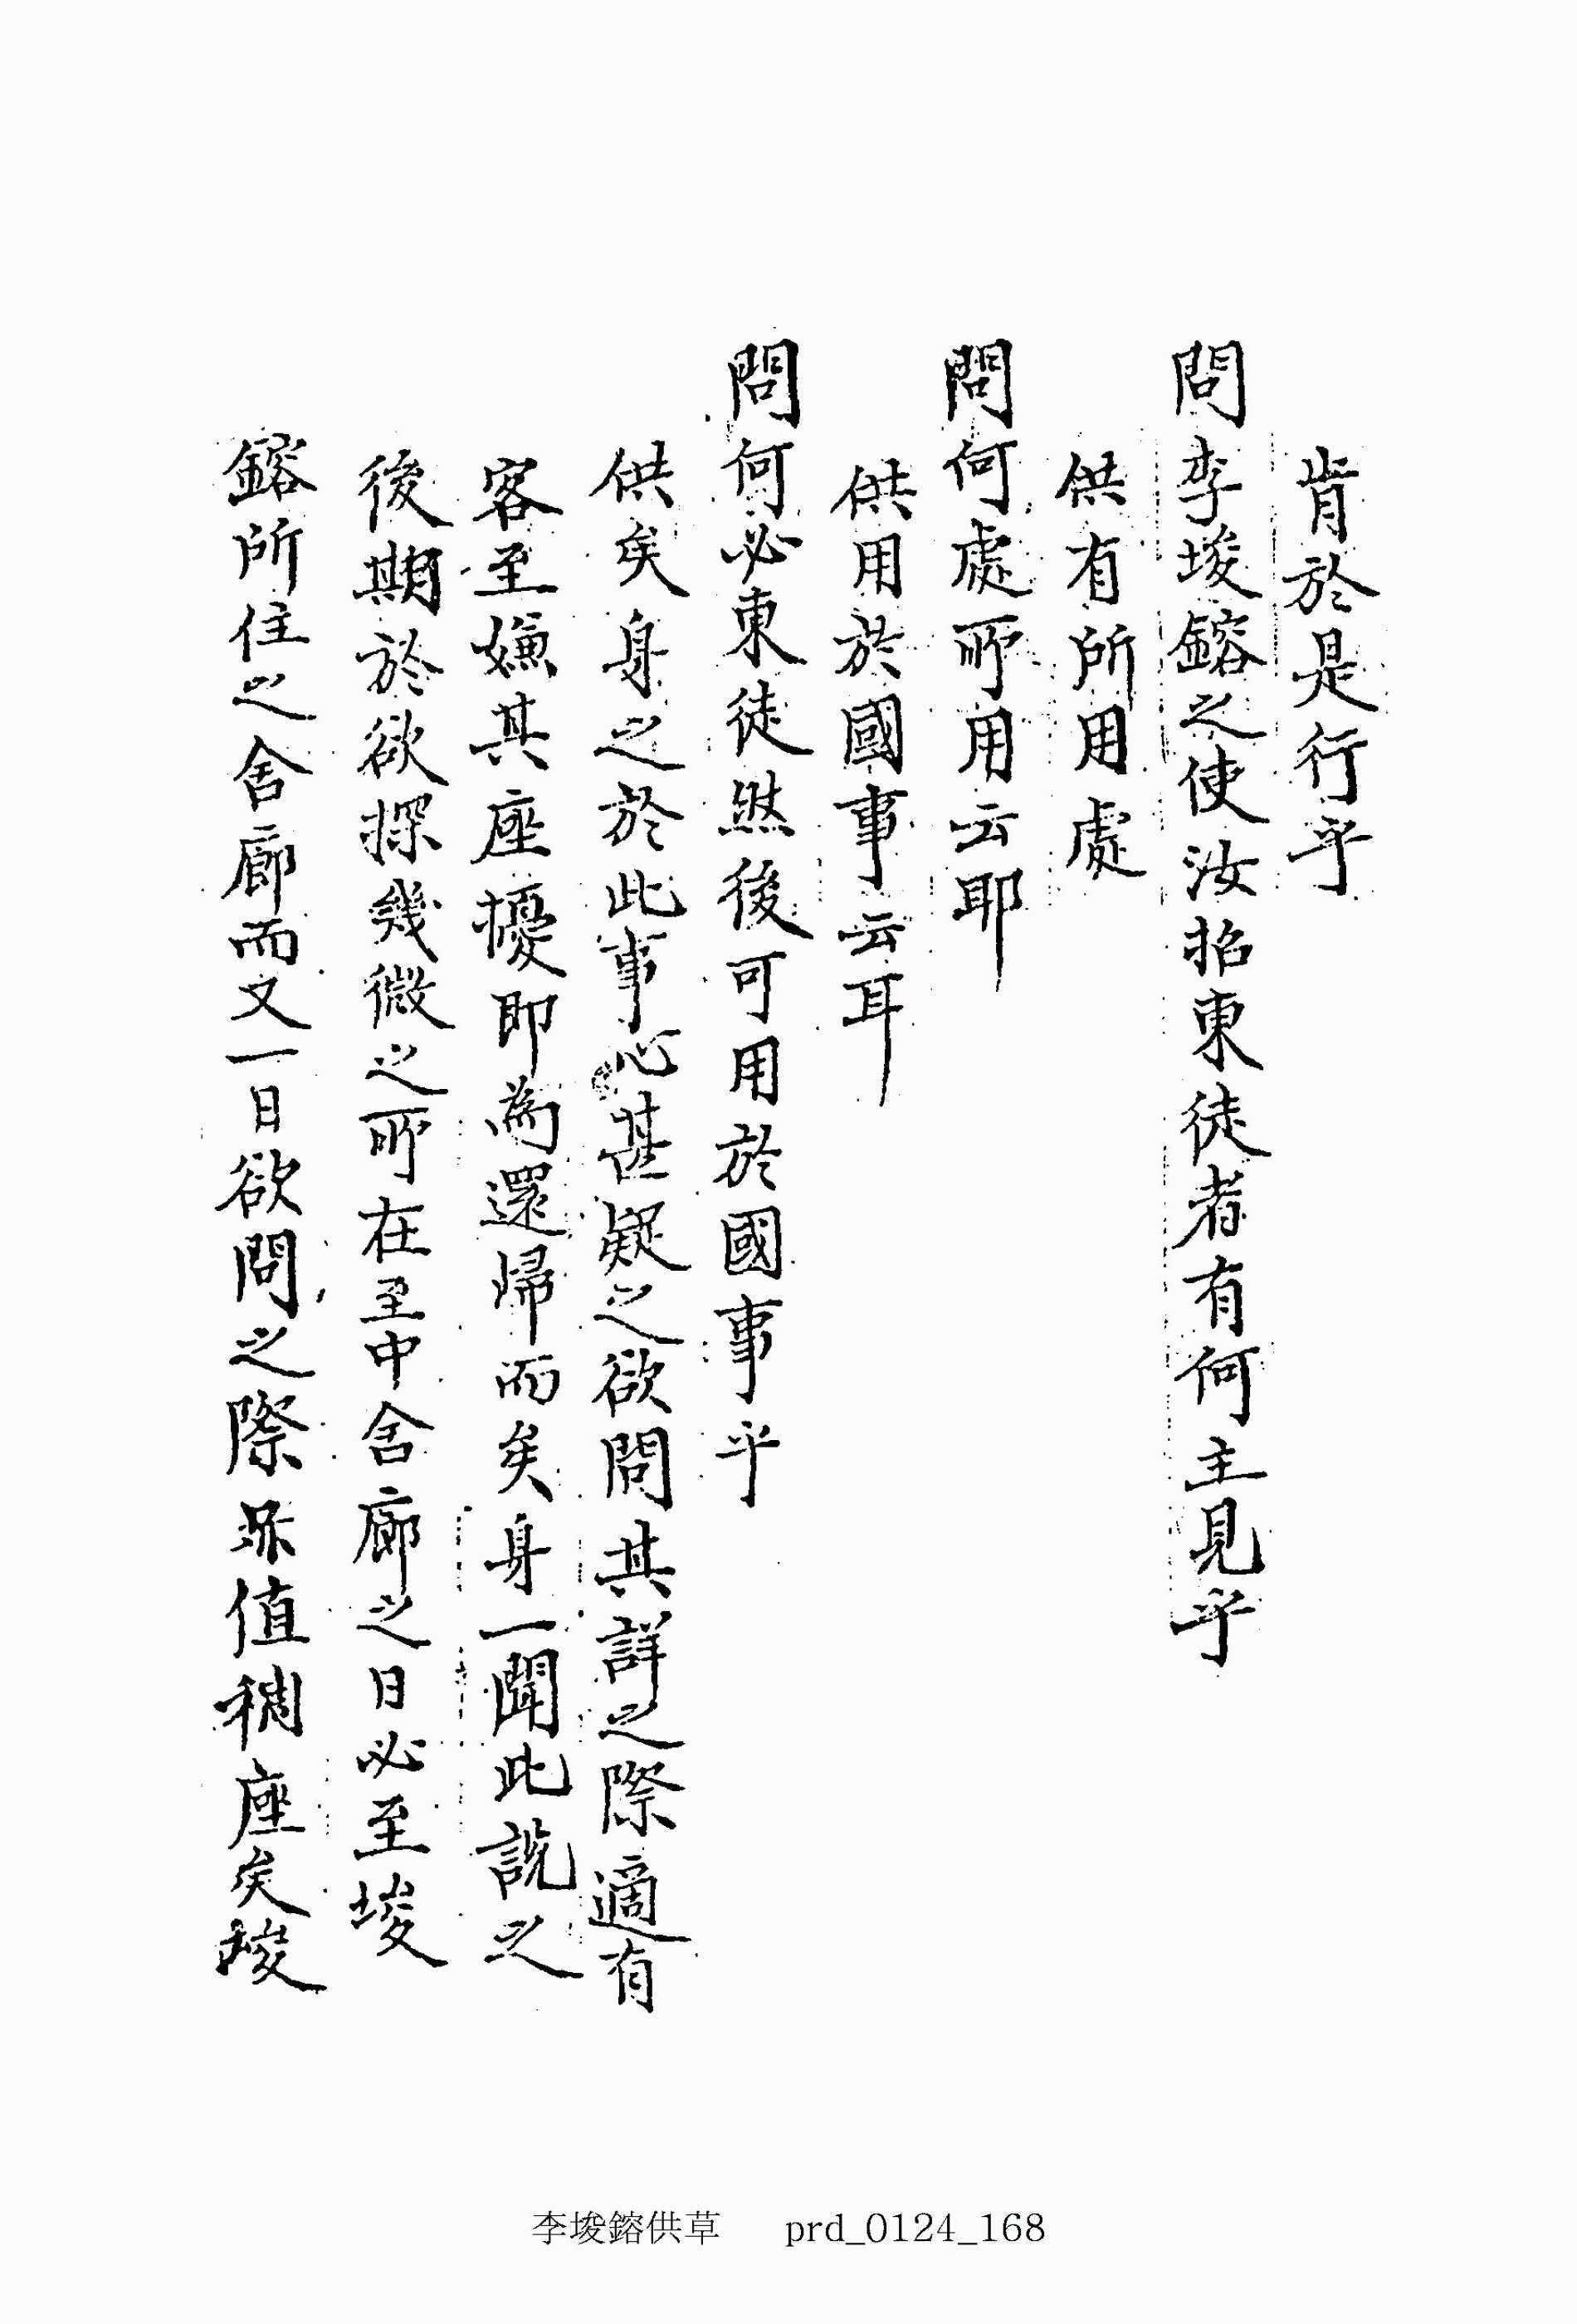 肯於是行乎
問李埈鎔之使汝招東徒者有何主見乎
供有所用處
問何處所用云耶
供用於國事云耳
問何必東徒然後可用於國事乎
供矣身之於此事心甚疑之欲問其詳之際適有
客至嫌其座擾即為還歸而矣身一聞此說之
後期於欲探幾微之所在至中舍廊之日必至埈
鎔所住之舍廊而又一日欲問之際亦值稠座矣埈
李埈鎔供草 prd_0124_168